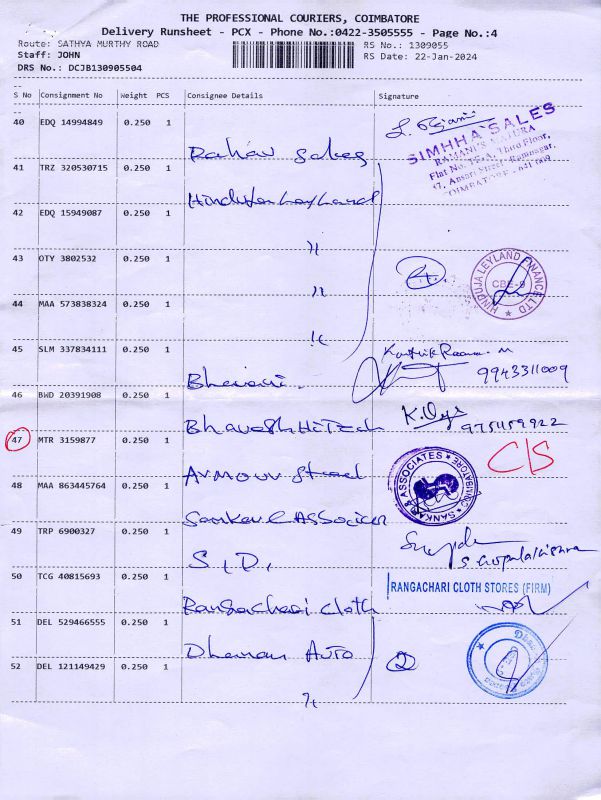 THE PROFESSIONAL COURIERS, COIMBATORE
Delivery Runsheet - PCX - Phone No.:0422-3505555 - Page No.:4
Route: SATHYA MURTHY ROAD RS No.: 1309055
Staff: JOHN RS Date: 22-Jan-2024
DRS No.: DCJB130905504
S No Consignment No Weight PCS Consignee Details Signature
40 EDQ 14994849 0.250 1
SIMHHA SALES
Flat No. 15-A, Third Floor,
47, Ansari Street, Ramnagar,
COIMBATORE - 641 009
Sales
41 TRZ 320530715 0.250 1
Hinduja Leyland
42 EDQ 15949087 0.250 1
43 OTY 3802532 0.250 1
HINDUJA LEYLAND FINANCE LTD
CBE-9
44 MAA 573838324 0.250 1
45 SLM 337834111 0.250 1
9943311009
46 BWD 20391908 0.250 1
Bhavesh HiTech
47 MTR 3159877 0.250 1
C/S
Armour Steel
SANKAR & ASSOCIATES
COIMBATORE
48 MAA 863445764 0.250 1
49 TRP 6900327 0.250 1
S.D.
S Gopalakrishna
50 TCG 40815693 0.250 1
RANGACHARI CLOTH STORES (FIRM)
Rangachari Cloth
51 DEL 529466555 0.250 1
Auto
2
52 DEL 121149429 0.250 1